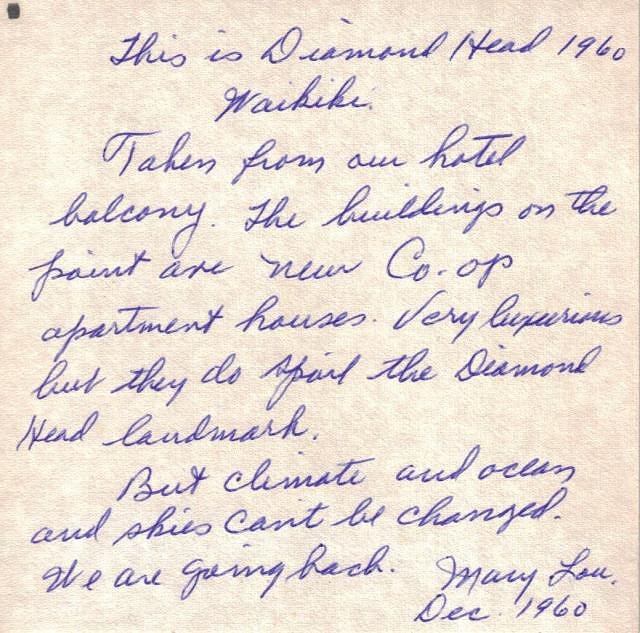 This is Diamond Head 1960
Waikiki.
Taken from our hotel
balcony. The buildings on the
point are new Co-op
apartment houses. Very luxurious
but they do spoil the Diamond
Head landmark.
But climate and ocean
and skies can't be changed.
We are going back. Mary Lou.
Dec. 1960